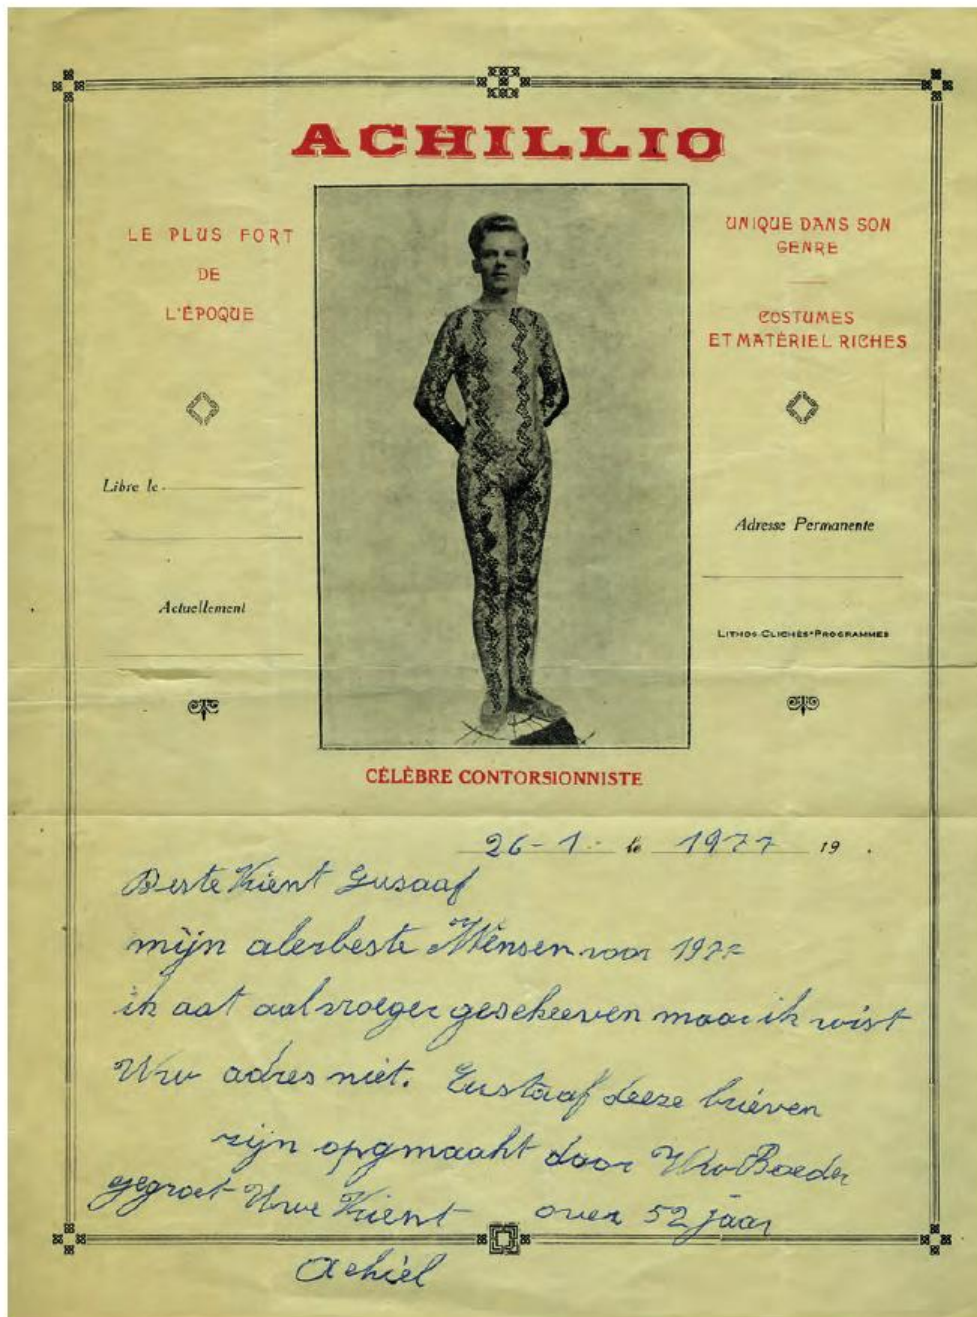 ACHILLIO
LE PLUS FORT
DE
L'ÉPOQUE
UNIQUE DANS SON
GENRE
COSTUMES
ET MATÉRIEL RICHES
Libre le
Adresse Permanente
Actuellement
LITHOS-CLICHÉS-PROGRAMMES
CÉLÈBRE CONTORSIONNISTE
26-1- le 1977 19 .
Beste Vrient Gusaaf
mijn alerbeste Wensen voor 1977
ik aat aal vroeger gescheeven maar ik wist
Uw adres niet. Gustaaf deeze brieven
zijn opgmaakt door Uw Boeder
gegroet Uwe Vrient over 52 jaar
Achiel